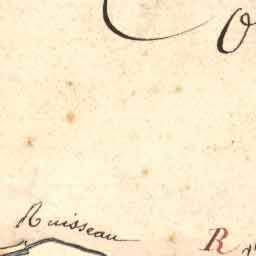 Co
Ruisseau
R